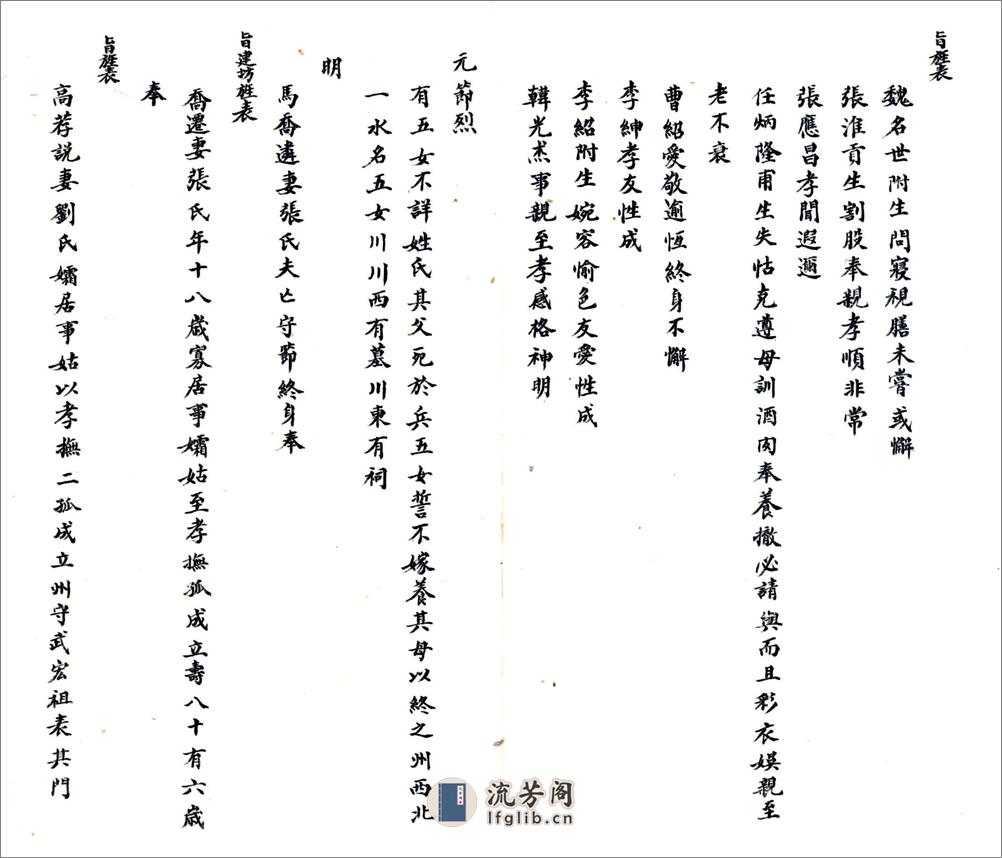 旨旌表
魏名世附生問寢視膳未嘗或懈
張淮貢生割股奉親孝順非常
張應昌孝聞遐邇
任炳隆甫生失怙克遵母訓酒肉奉養撤必請與而且彩衣娛親至
老不衰
曹紹愛敬逾恆終身不懈
李紳孝友性成
李紹附生婉容愉色友愛性成
韓光杰事親至孝感格神明
元節烈
有五女不詳姓氏其父死於兵五女誓不嫁養其母以終之州西北
一水名五女川川西有墓川東有祠
明
馬喬遴妻張氏夫亡守節終身奉
旨建坊旌表
喬遷妻張氏年十八歲寡居事孀姑至孝撫孤成立壽八十有六歲
奉
旨旌表
高荐說妻劉氏孀居事姑以孝撫二孤成立州守武宏祖表其門
流芳阁
lfglib.cn